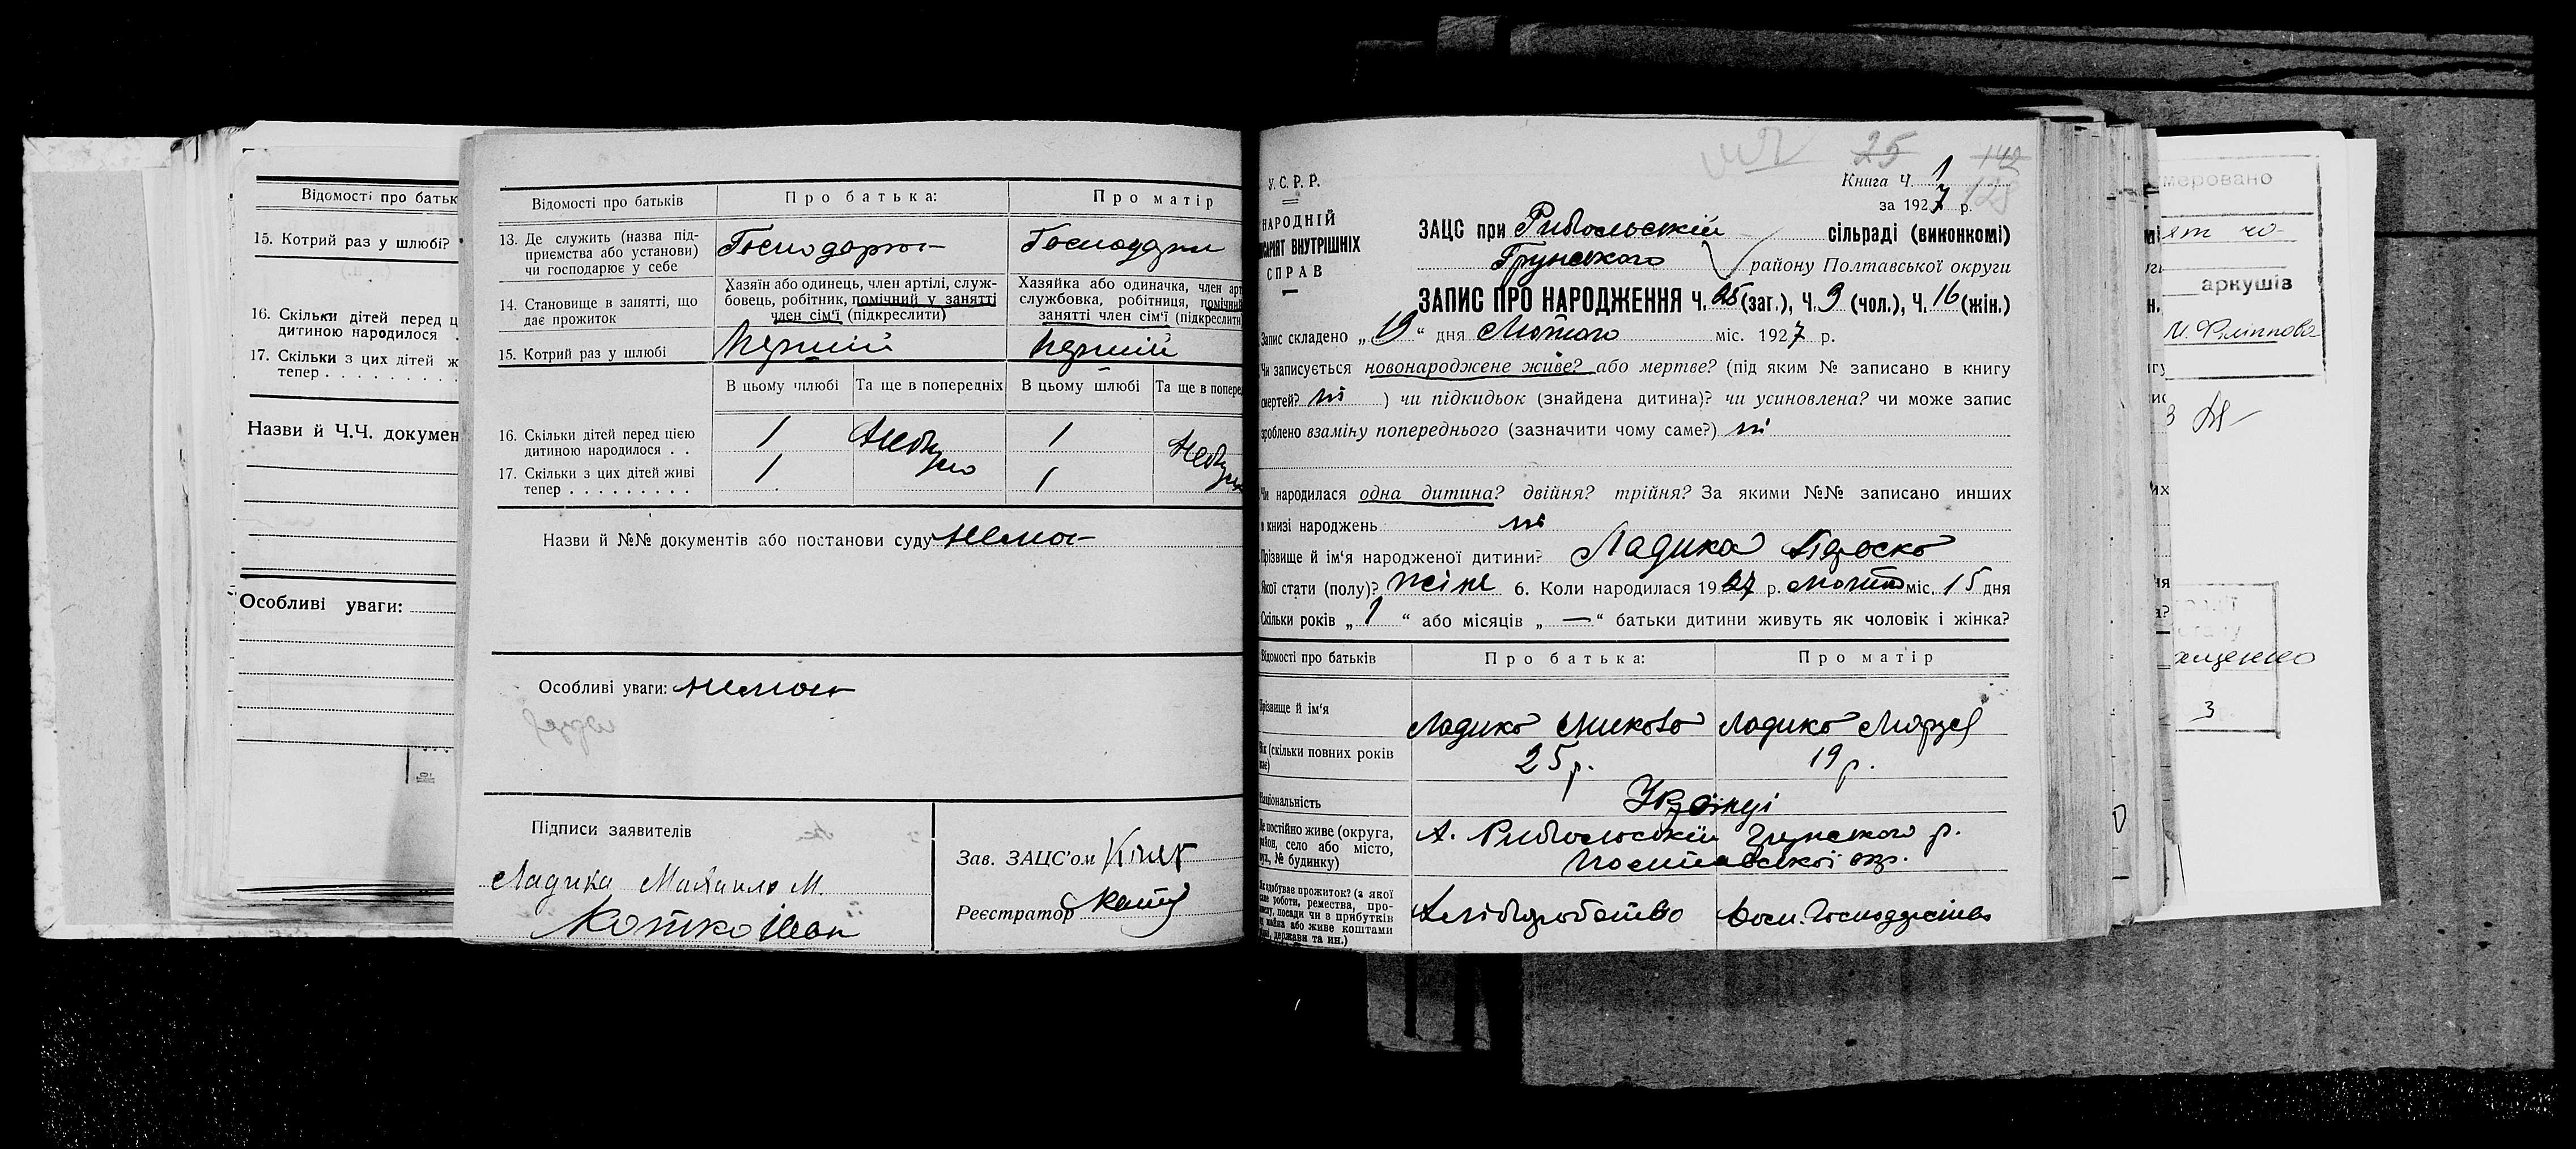 Відомості про батьк
15. Котрий раз у шлюбі?
16. Скільки дітей перед ц
дитиною народилося .
17. Скільки з цих дітей ж
тепер . . . . . . . . .
Назви й Ч.Ч. докумен
Особливі уваги:
Відомості про батьків
Про батька:
Про матір
13. Де служить (назва під-
приємства або установи)
чи господарює у себе
14. Становище в занятті, що
дає прожиток
Хазяїн або одинець, член артілі, служ-
бовець, робітник, помічний у занятті
член сім'ї (підкреслити)
Хазяйка або одиначка, член арт
службовка, робітниця, помічний
занятті член сім'ї (підкреслити
15. Котрий раз у шлюбі
Перший
перший
В цьому шлюбі
Та ще в попередніх
В цьому шлюбі
Та ще в попере
16. Скільки дітей перед цією
дитиною народилося . .
1
1
17. Скільки з цих дітей живі
тепер . . . . . . . . .
1
1
Назви й №№ документів або постанови суду немає
Особливі уваги: немає
Підписи заявителів
Ладика Михайло М.
Котко Іван
Зав. ЗАЦС'ом
Реєстратор
У.С.Р.Р.
НАРОДНІЙ
САРІЯТ ВНУТРІШНІХ
СПРАВ
25
142
Книга Ч. 1
за 1927 р.
ЗАЦС при сільраді (виконкомі)
Грунського району Полтавської округи
ЗАПИС ПРО НАРОДЖЕННЯ Ч. 25 (заг.), Ч. 9 (чол.), Ч. 16 (жін.)
Запис складено „19“ дня Лютого міс. 1927 р.
Чи записується новонароджене живе? або мертве? (під яким № записано в книгу
смертей? ні ) чи підкидьок (знайдена дитина)? чи усиновлена? чи може запис
зроблено взаміну попереднього (зазначити чому саме?) ні
Чи народилася одна дитина? двійня? трійня? За якими №№ записано инших
в книзі народжень ні
Прізвище й ім'я народженої дитини? Ладика Параска
Якої стати (полу)? жіне 6. Коли народилася 1927 р. лютого міс. 15 дня
Скільки років „1“ або місяців „—“ батьки дитини живуть як чоловік і жінка?
Відомості про батьків
Про батька:
Про матір
Прізвище й ім'я
Ладика Микола
Ладика
Вік (скільки повних років
має)
25 р.
19 р.
Національність
Українці
Де постійно живе (округа,
район, село або місто,
вул., № будинку)
Грунського р.
Полтавської окр.
Як здобуває прожиток? (з якої
держави та ин.)
Хліборобство
меровано
аркушів
3